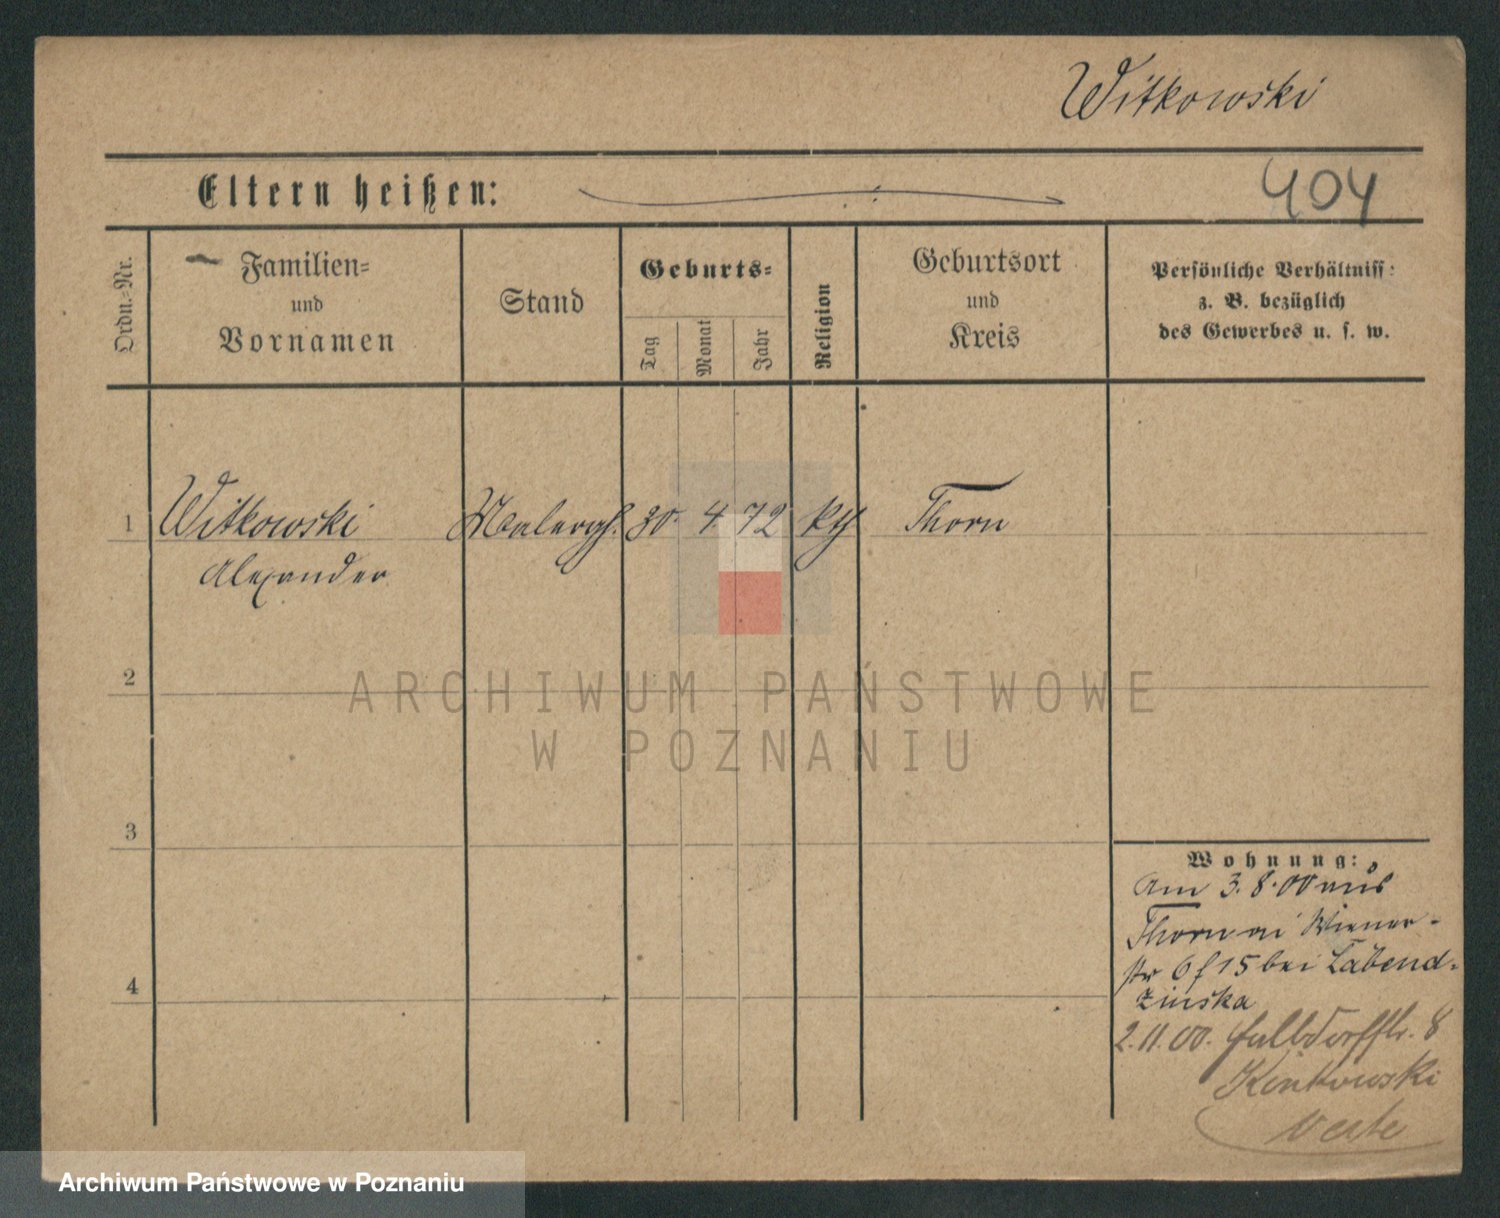 Witkowski
Eltern heißen:
404
Ordn.-Nr.
Familien-
und
Vornamen
Stand
Geburts-
Tag
Monat
Jahr
Religion
Geburtsort
und
Kreis
Persönliche Verhältniss:
z. B. bezüglich
des Gewerbes u. s. w.
1
Witkowski Malergh. 30. 4. 72 kth Thorn
Alexander
2
3
4
Wohnung:
Am 3.8.00 aus
Thorn Wiener-
str 6 15 bei Labend-
zinska
2.11.00. 8
verte
ARCHIWUM PAŃSTWOWE
W POZNANIU
Archiwum Państwowe w Poznaniu